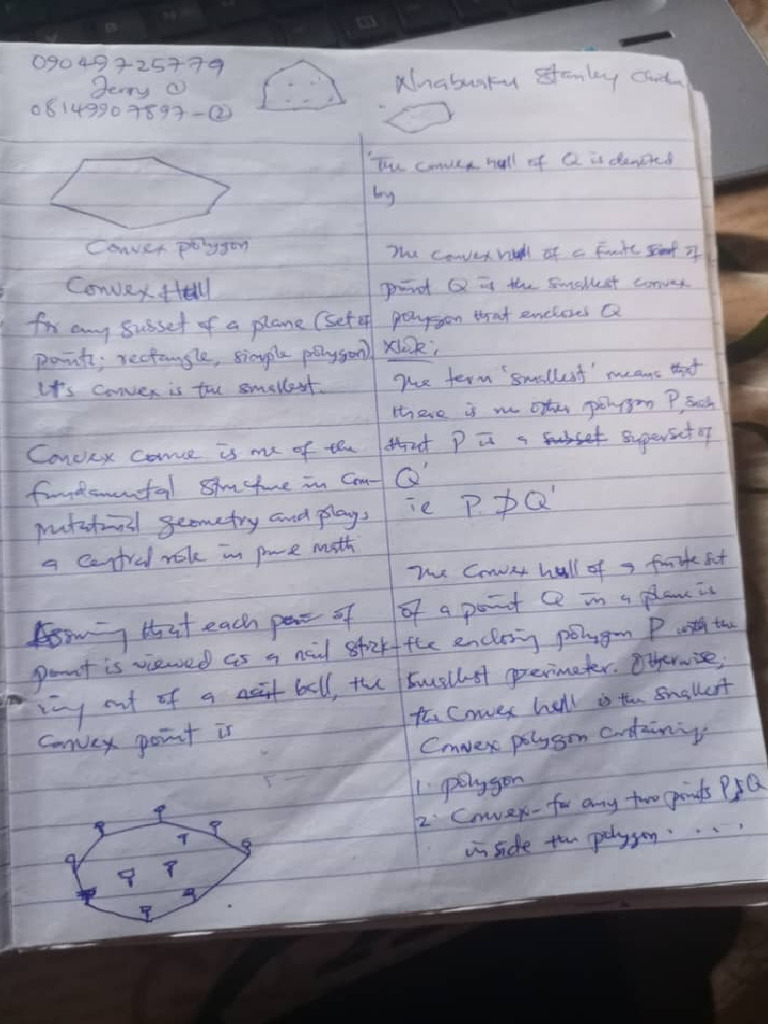 09049725779
Jerry ①
08149907897 - ②
Stanley
Convex polygon
Convex Hull
for any subset of a plane (set of
points; rectangle, simple polygon)
It's convex is the smallest.
Convex is one of the
fundamental structure in Com-
putational geometry and plays
a central role in pure math
Assuming that each of
point is viewed as a nail stick-
ing out of a ball, the
Convex point is
The convex hull of Q is denoted
by
The convex hull of a finite of
point Q is the smallest convex
polygon that encloses Q
The term 'smallest' means that
there is no other polygon P, such
that P is a subset superset of
Q'
ie P ⊅ Q'
The convex hull of a finite set
of a point Q in a plane is
the enclosing polygon P with the
smallest perimeter. Otherwise,
the Convex hull is the smallest
Convex polygon containing.
1. polygon
2. Convex - for any two points P, Q
inside the polygon . . . .